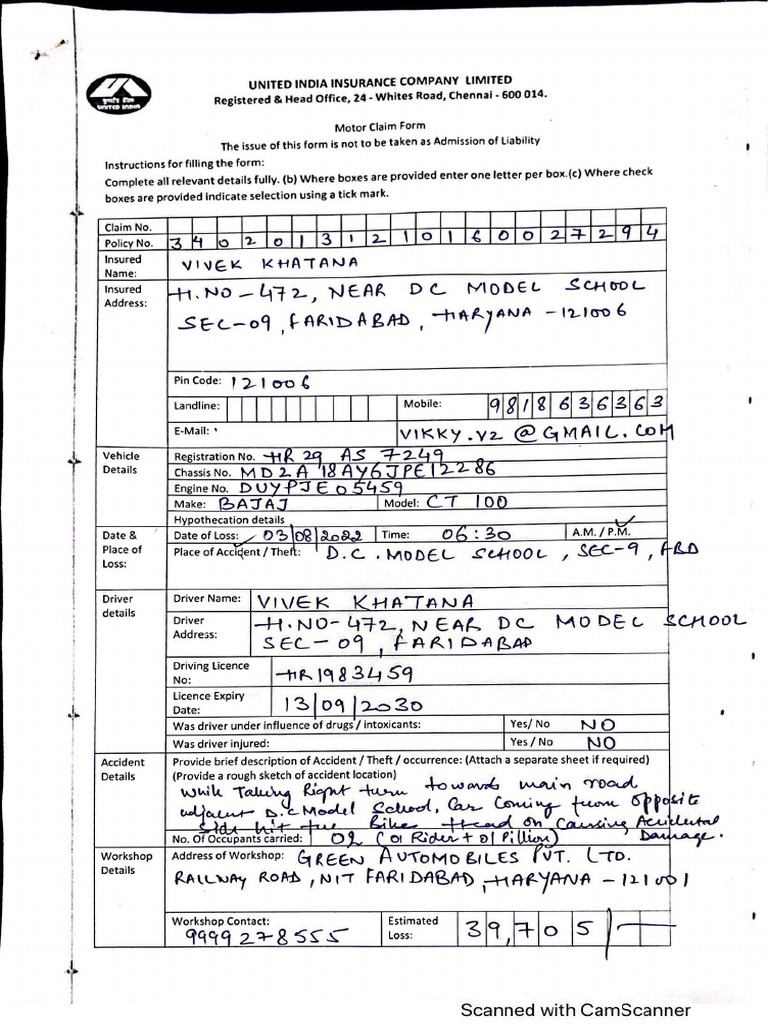 UNITED INDIA INSURANCE COMPANY LIMITED
Registered & Head Office, 24 - Whites Road, Chennai - 600 014.
यूनाइटेड इंडिया
UNITED INDIA
Motor Claim Form
The issue of this form is not to be taken as Admission of Liability
Instructions for filling the form:
Complete all relevant details fully. (b) Where boxes are provided enter one letter per box.(c) Where check
boxes are provided indicate selection using a tick mark.
Claim No.
Policy No. 34020131210160027294
Insured Name: VIVEK KHATANA
Insured Address: H.NO-472, NEAR DC MODEL SCHOOL
SEC-09, FARIDABAD, HARYANA -121006
Pin Code: 121006
Landline: Mobile: 9818636363
E-Mail: VIKKY.V2@GMAIL.COM
Vehicle Details
Registration No. HR 29 AS 7249
Chassis No. MD2A18AY6JPE12286
Engine No. DUYPJE05459
Make: BAJAJ Model: CT 100
Hypothecation details
Date & Place of Loss:
Date of Loss: 03/08/2022 Time: 06:30 A.M. / P.M.
Place of Accident / Theft: D.C. MODEL SCHOOL, SEC-9, FBD
Driver details
Driver Name: VIVEK KHATANA
Driver Address: H.NO-472, NEAR DC MODEL SCHOOL
SEC-09, FARIDABAD
Driving Licence No: HR1983459
Licence Expiry Date: 13/09/2030
Was driver under influence of drugs / intoxicants: Yes/ No NO
Was driver injured: Yes / No NO
Accident Details
Provide brief description of Accident / Theft / occurrence: (Attach a separate sheet if required)
(Provide a rough sketch of accident location)
While Taking Right turn towards main road
adjacent D.C Model School, Car Coming from opposite
side hit the Bike Head on Causing Accidental
Damage.
No. Of Occupants carried: 02 (01 Rider + 01 Pillion)
Workshop Details
Address of Workshop: GREEN AUTOMOBILES PVT. LTD.
RAILWAY ROAD, NIT FARIDABAD, HARYANA - 121001
Workshop Contact: 9999278555
Estimated Loss: 39,705/-
Scanned with CamScanner